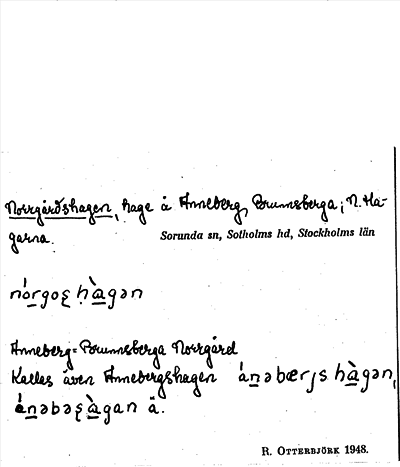 Norrgårdshagen, hage å Anneberg, Brunnsberga; N. Ha-
garna.
Sorunda sn, Sotholms hd, Stockholms län
Anneberg = Brunnsberga Norrgård
Kallas även Annebergshagen
ä.
R. OTTERBJÖRK 1948.